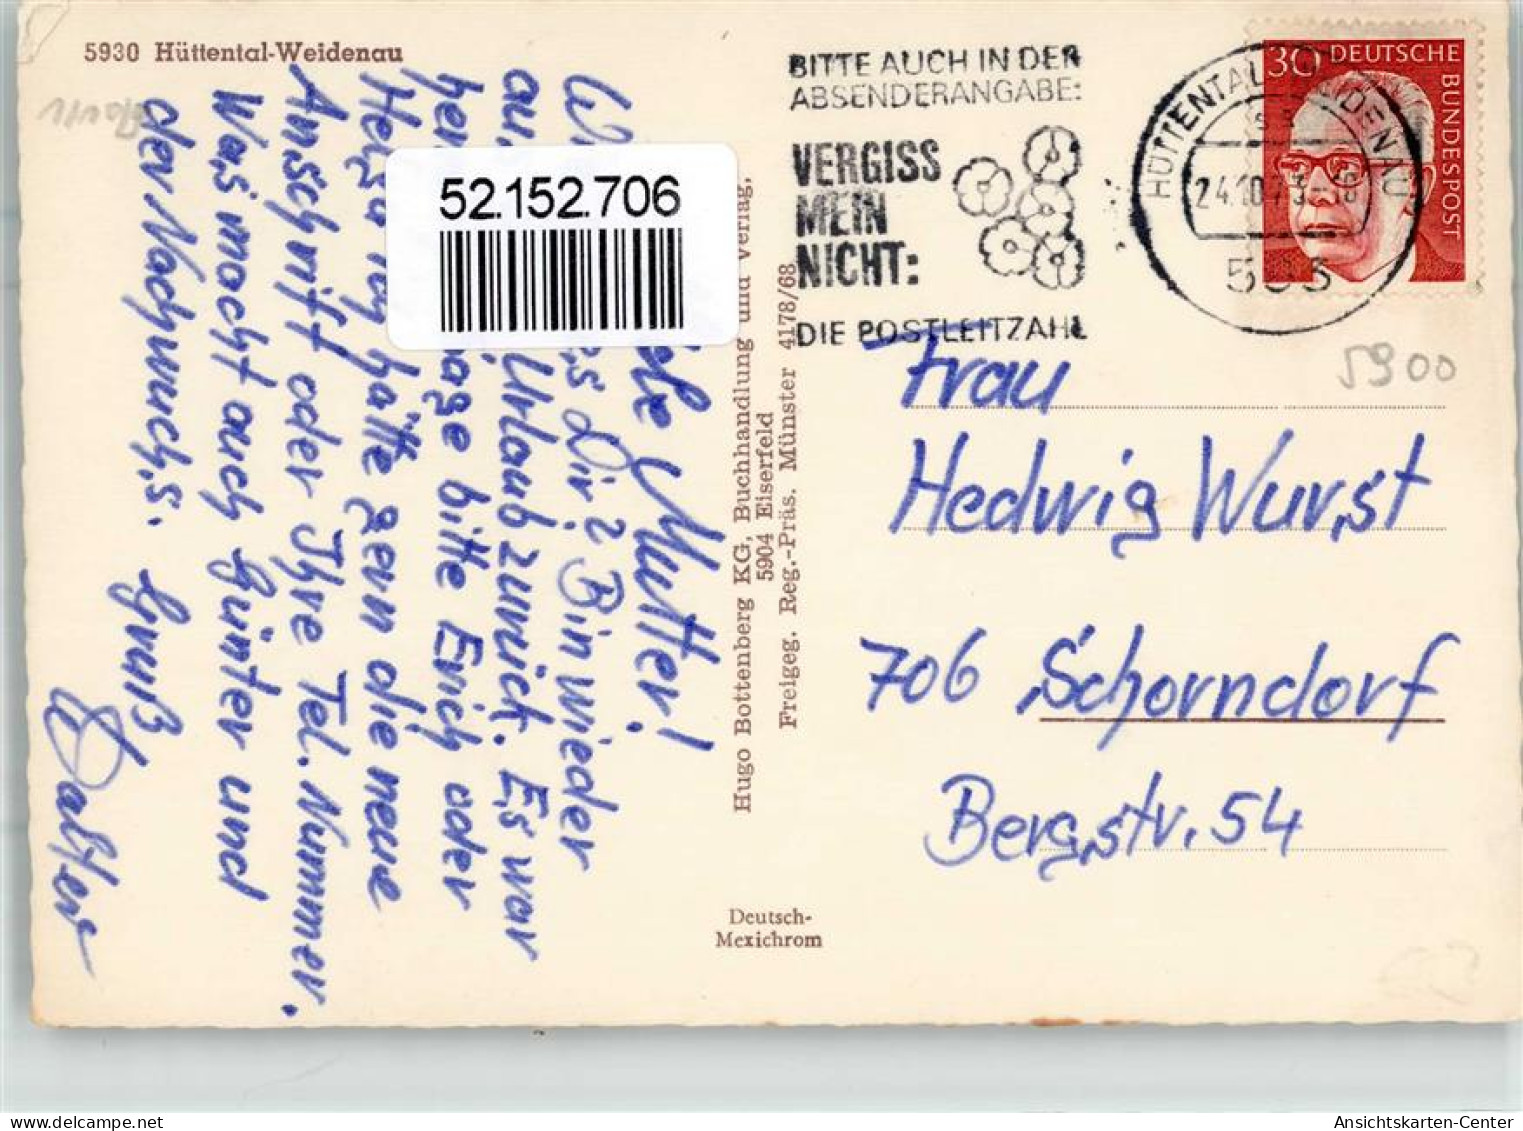 5930 Hüttental-Weidenau
Mutter!
Dir? Bin wieder
Urlaub zurück. Es war
bitte Erich oder
hätte gern die neue
Anschrift oder Ihre Tel. Nummer.
Was macht auch Günter und
der Nachwuchs.
Gruß
Walter
52.152.706
Hugo Bottenberg KG, Buchhandlung und Verlag,
5904 Eiserfeld
Freigeg. Reg.-Präs. Münster 4178/68
Deutsch-
Mexichrom
BITTE AUCH IN DER
ABSENDERANGABE:
VERGISS
MEIN
NICHT:
DIE POSTLEITZAHL
HÜTTENTAL-WEIDENAU
24.10.73-18
593
30 DEUTSCHE
BUNDESPOST
5900
Frau
Hedwig Wurst
706 Schorndorf
Bergstr. 54
Ansichtskarten-Center
delcampe.net